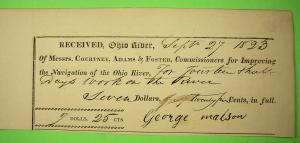 RECEIVED, Ohio River, Sept 27 1825
Of MESSRS. COURTNEY, ADAMS & FOSTER, Commissioners for Improving
the Navigation of the Ohio River, For fourteen
Days work on the
Seven Dollars, twenty five Cents, in full.
7 DOLLS. 25 CTS
George Matson